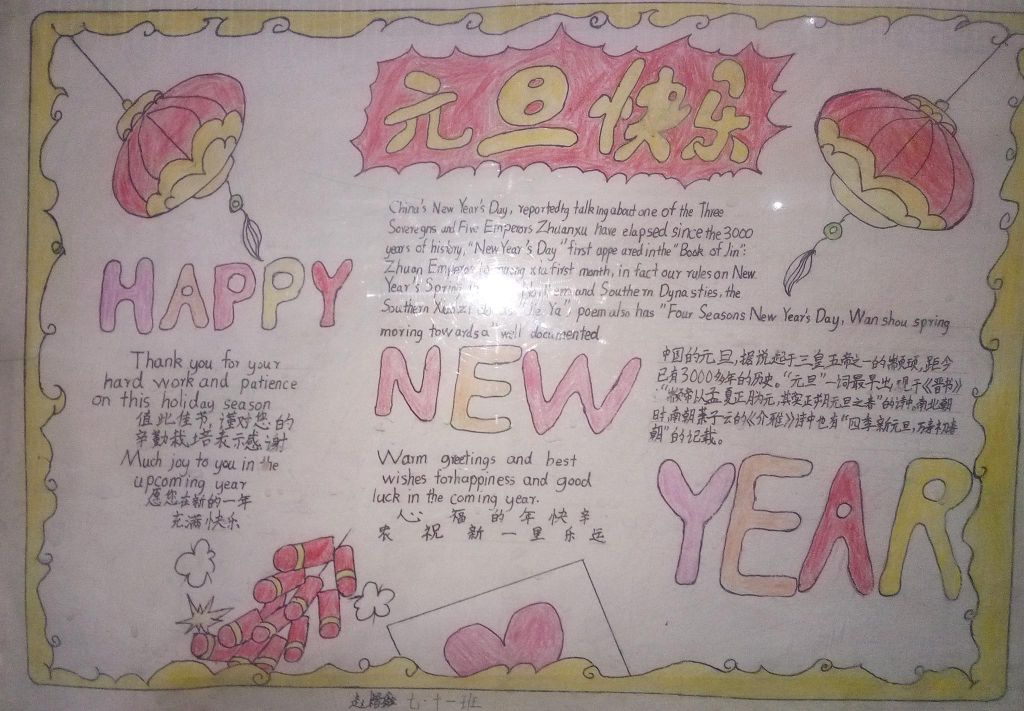 元旦快乐
China's New Year's Day, reportedly talking about one of the Three
Sovereigns and Five Emperors Zhuanxu have elapsed since the 3000
years of history, "New Year's Day" first appeared in the "Book of Jin":
Zhuan Emperor xiu first month, in fact our rules on New
Year's Spring and Southern Dynasties, the
Southern Ya" poem also has "Four Seasons New Year's Day, Wan shou spring
moring towards a" well documented
HAPPY
Thank you for your
hard work and patience
on this holiday season
值此佳节,谨对您的
辛勤栽培表示感谢
Much joy to you in the
upcoming year
愿您在新的一年
充满快乐
NEW
Warm greetings and best
wishes for happiness and good
luck in the coming year.
心 福 的 年 快 辛
农 祝 新 一 里 乐 运
中国的元旦,据说起于三皇五帝之一的颛顼,距今
已有3000多年的历史。"元旦"一词最早出现于《晋书》
"帝以孟夏正月为元,其实正朔元旦之春"的诗中,南北朝
时,南朝萧子云的《介雅》诗中也有"四季新元旦,万寿初春
朝"的记载。
YEAR
七·十一班